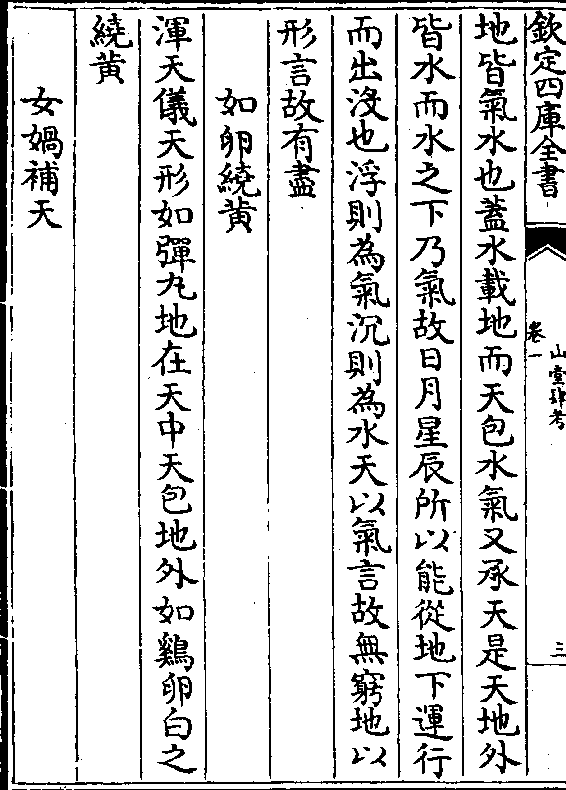 欽定四庫全書
山堂肆考
卷一
三
地皆氣水也蓋水載地而天包水氣又承天是天地外
皆水而水之下乃氣故日月星辰所以能從地下運行
而出没也浮則為氣沉則為水天以氣言故無窮地以
形言故有盡
如卵繞黄
渾天儀天形如彈丸地在天中天包地外如鷄卵白之
繞黄
女媧補天